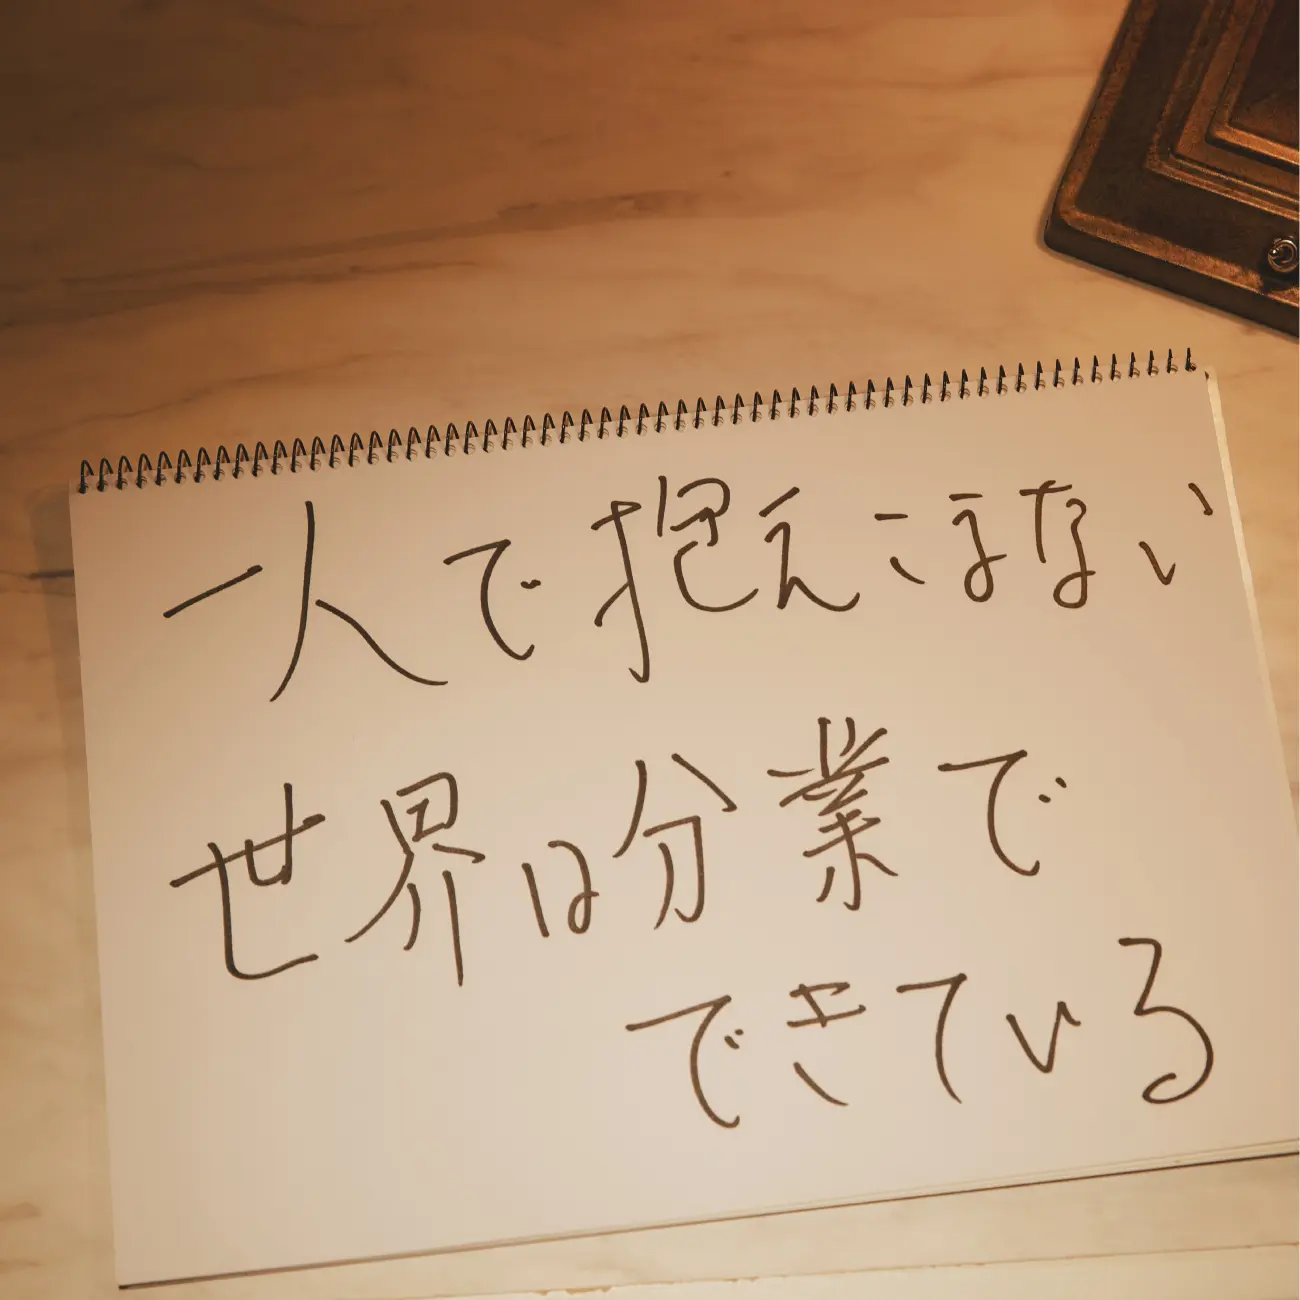 一人で抱えこまない
世界は分業で
できている